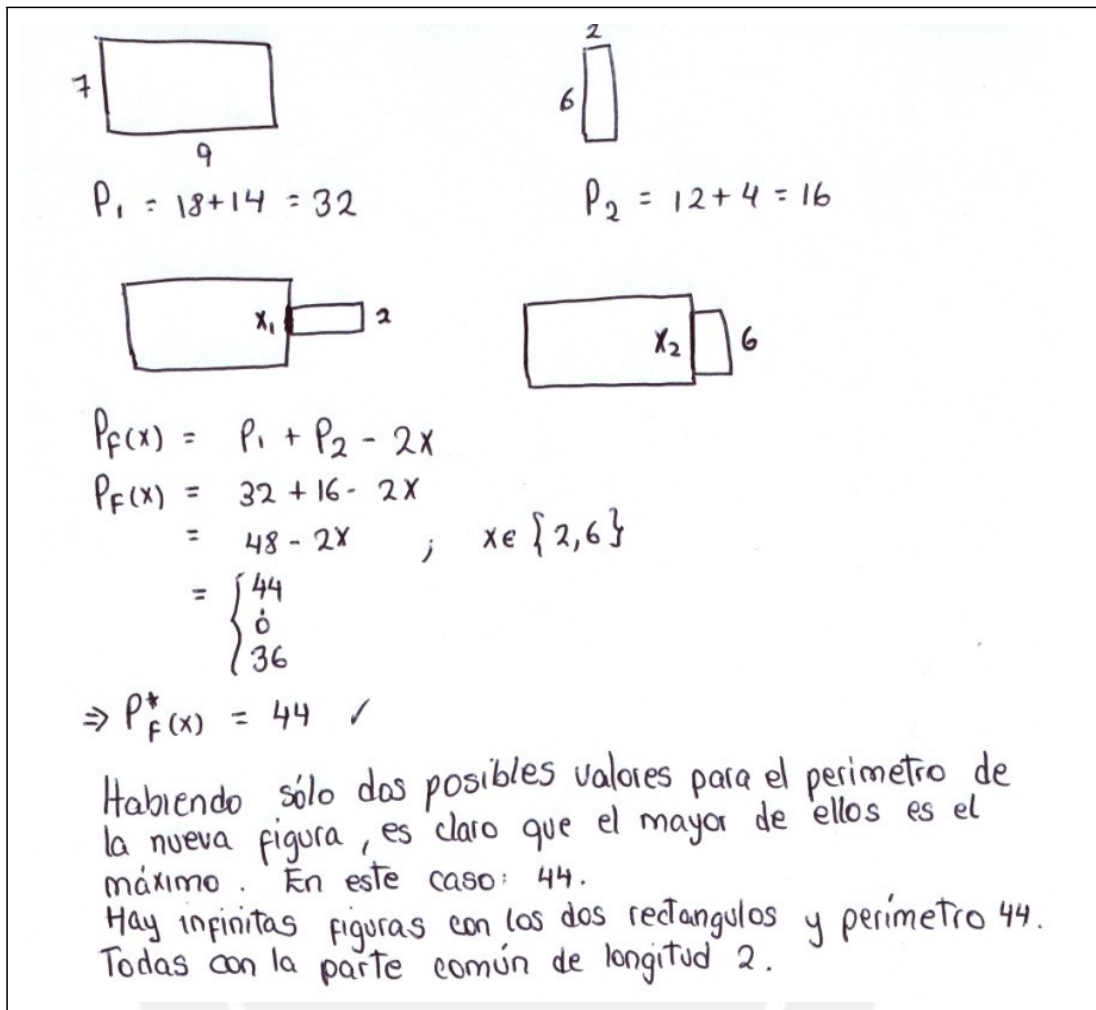 7
9
2
6
P₁ = 18+14 = 32
P₂ = 12+4 = 16
X₁ 2
X₂ 6
P_F(x) = P₁ + P₂ - 2X
P_F(x) = 32 + 16 - 2X
= 48 - 2X ; x ∈ {2,6}
= { 44
ó
36
⇒ P*_F(x) = 44 ✓
Habiendo sólo dos posibles valores para el perimetro de
la nueva figura, es claro que el mayor de ellos es el
máximo. En este caso: 44.
Hay infinitas figuras con los dos rectangulos y perímetro 44.
Todas con la parte común de longitud 2.